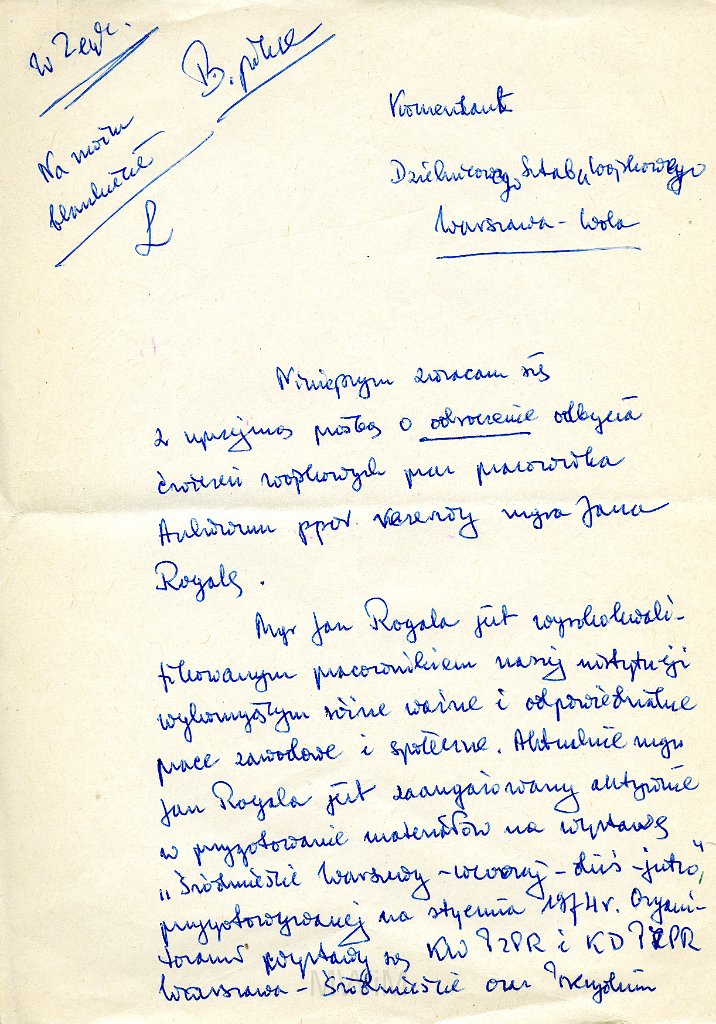 w 2 egz.
B. pilne
Na moim
blankiecie
L
Komendant
Dzielnicowego Sztabu Wojskowego
Warszawa - Wola
Niniejszym zwracam się
z uprzejmą prośbą o odroczenie odbycia
ćwiczeń wojskowych przez pracownika
Archiwum ppor. rezerwy mgra Jana
Rogalę.
Mgr Jan Rogala jest wysokokwali-
fikowanym pracownikiem naszej instytucji
wykonującym różne ważne i odpowiedzialne
prace zawodowe i społeczne. Aktualnie mgr
Jan Rogala jest zaangażowany aktywnie
w przygotowanie materiałów na wystawę
„Śródmieście Warszawy - wczoraj - dziś - jutro",
przygotowywanej na styczeń 1974 r. Organi-
zatorami wystawy są KW PZPR i KD PZPR
Warszawa - Śródmieście oraz Prezydium